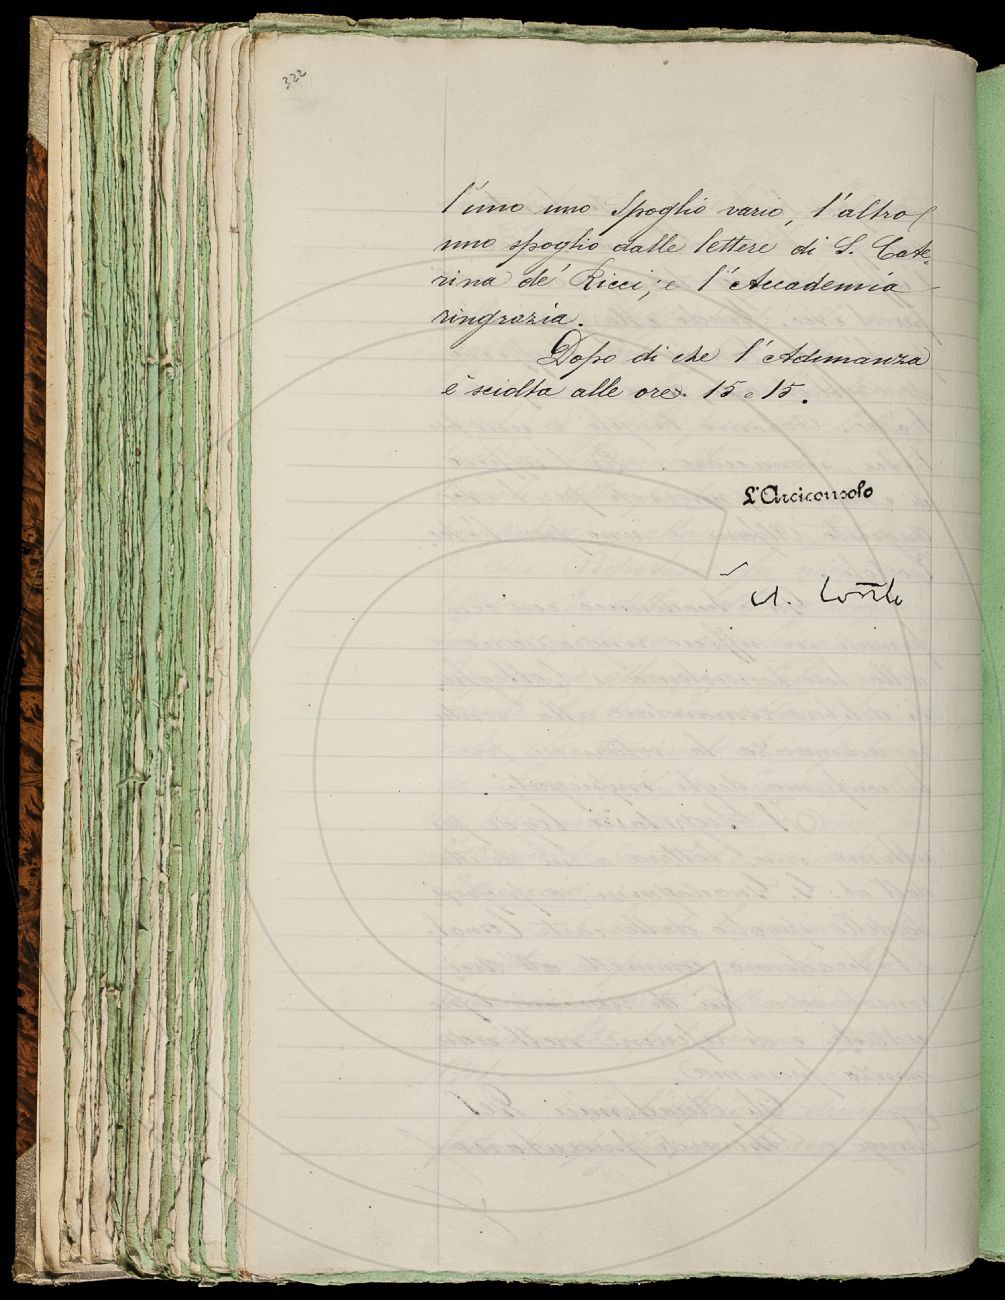 322
l'uno uno spoglio vario, l'altro
uno spoglio dalle lettere di S. Cate-
rina de' Ricci; e l'Accademia
ringrazia.
Dopo di che l'Adunanza
è sciolta alle ore 15 e 15.
L'Arciconsolo
A. Conti